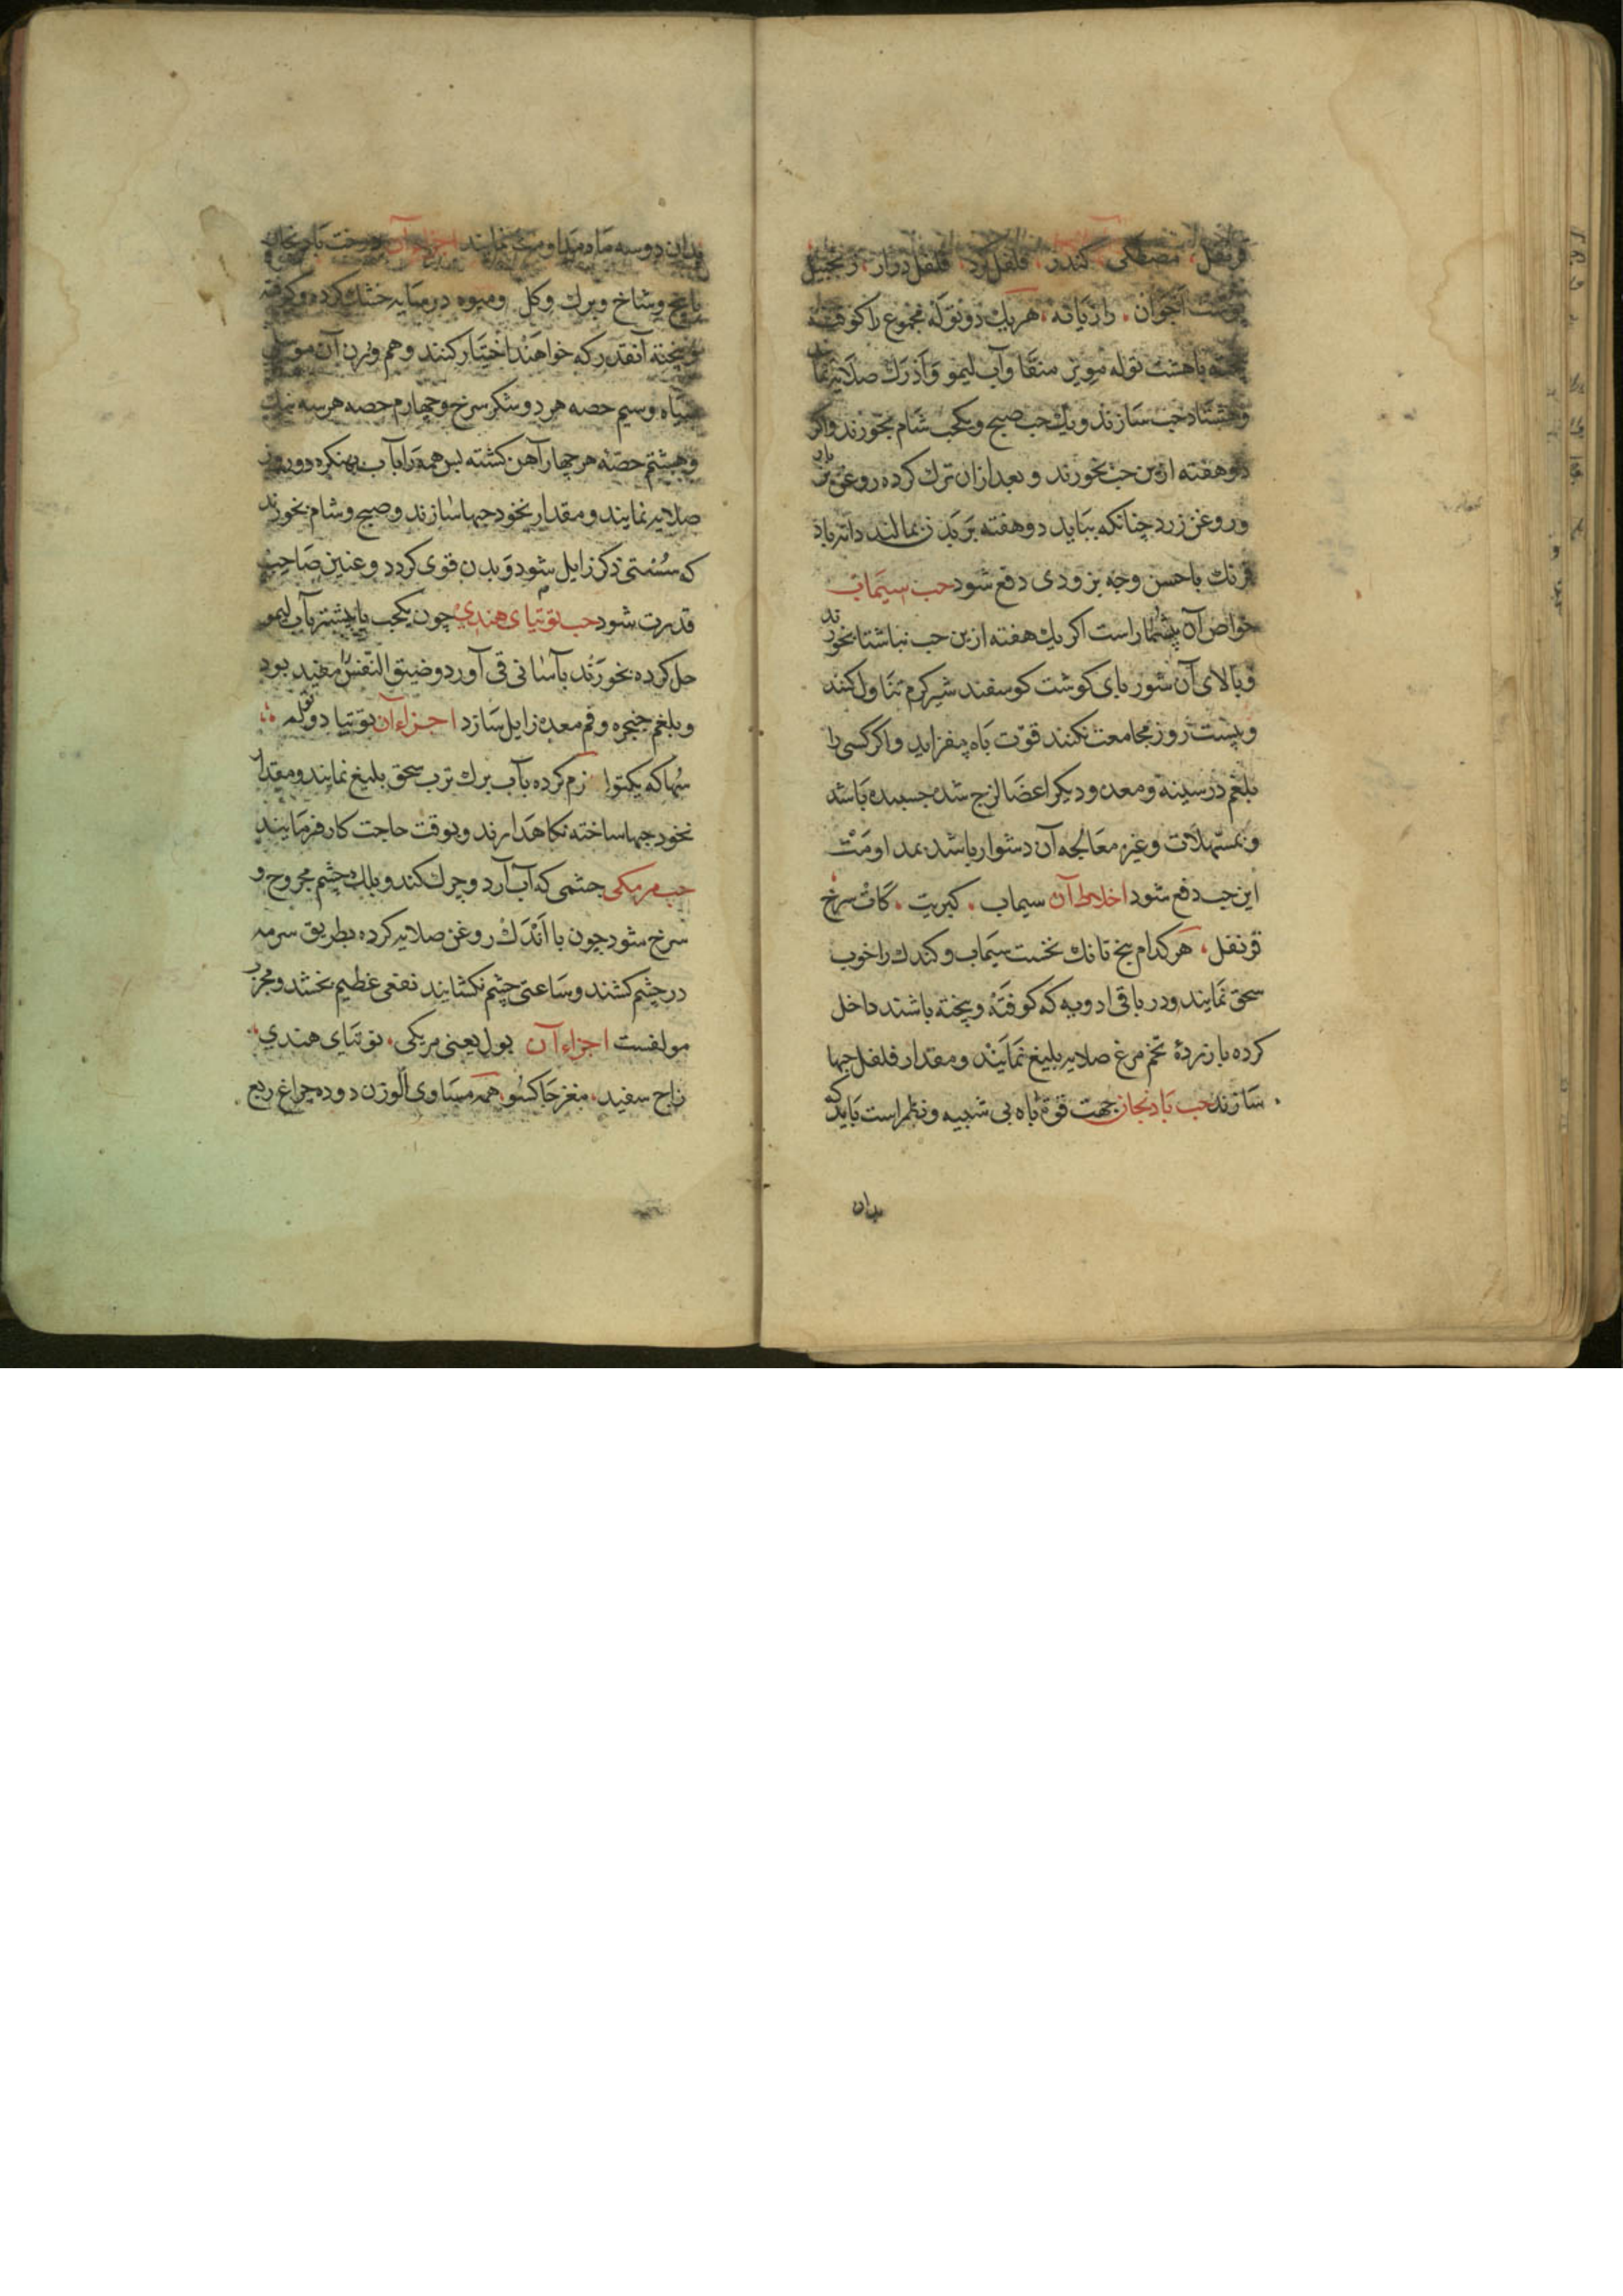 قرنفل، مصطکی کندر، فلفل کرد، فلفل دراز، زنجبیل
پوست اجوان، رازیانه، هریک دو توله مجموع را کوفته
بیخته با هشت توله مویز منقا و آب لیمو و ادرک صلایه نمایند
و هشتاد حب سازند و یک حب صبح و یکحب شام بخورند و اگر
دو هفته ازین حب بخورند و بعد ازان ترک کرده روغن
و روغن زرد چنانکه بباید دو هفته بر بدن بمالند دانه باد
فرنک باحسن وجه بزودی دفع شود حب سیماب
خواص آن بیشمار است اکر یک هفته ازین حب نباشتا بخورند
و بالای آن شوربای کوشت کوسفند شیرکرم تناول کنند
و بیست روز مجامعت نکنند قوت باه بیفزاید و اکر کسی را
بلغم در سینه و معده و دیکر اعضا لزج شده چسبیده باشد
و بمسهلات و غیره معالجه آن دشوار باشد بمداومت
این حب دفع شود اخلاط آن سیماب، کبریت، کات سرخ
قرنفل، هرکدام پنج تانک نخست سیماب و کندک را خوب
سحق نمایند و در باقی ادویه که کوفته و بیخته باشند داخل
کرده با زردهٔ تخم مرغ صلایه بلیغ نمایند و مقدار فلفل حبها
سازند حب بادنجان جهت قوة باه بی شبیه و نظیر است باید که
بدان
بدان دو سه ماه مداومت نمایند اجزاء آن درخت بادنجان
با بیخ و شاخ و برک و کل و میوه در سایه خشک کرده و کوفته
و بیخته آنقدر که خواهند اختیار کنند و هم وزن آن موصلی
سیاه و سیم حصه هر دو شکر سرخ و چهارم حصه هر سه
و هشتم حصه هر چهار آهن کشته پس همه را باب بهنکره دو روز
صلایه نمایند و مقدار نخود حبها سازند و صبح و شام بخورند
که سستی ذکر زایل شود و بدن قوی کردد و عنین صاحب
قدرت شود حب توتیای هندی چون یکحب یا بیشتر باب لیمو
حل کرده بخورند بآسانی قی آورد و ضیق النفس را مفید بود
و بلغم حنجره و فم معده زایل سازد اجزاء آن توتیا دو توله
سهاکه یکتوله نرم کرده بآب برک ترب سحق بلیغ نمایند و مقدار
نخود حبها ساخته نکاهدارند و بوقت حاجت کار فرمایند
حب مرمکی چشمی که آب آرد و چرک کند و پلک چشم مجروح و
سرخ شود چون با اندک روغن صلایه کرده بطریق سرمه
در چشم کشند و ساعتی چشم نکشایند نفعی عظیم بخشد و مجرب
مولفست اجزاء آن بول یعنی مرمکی، توتیای هندی
زاج سفید، مغز چاکسو، همه مساوی الوزن دوده چراغ ربع